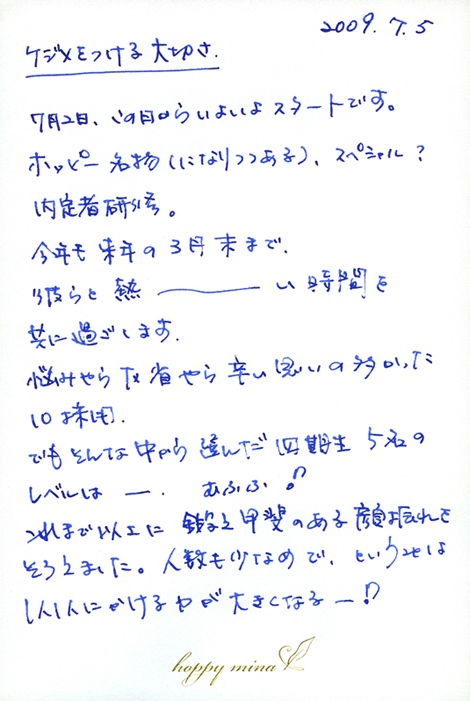 2009.7.5
ケジメをつける大切さ.
7月2日、この日からいよいよスタートです。
ホッピー名物(になりつつある)、スペシャル?
内定者研修。
今年も来年の3月末まで、
彼らと熱——い時間を
共に過ごします.
悩みやら反省やら辛い思いの多かった
10採用.
でもそんな中から選んだ四期生5名の
レベルは—. むふふ!?
これまで以上に鍛え甲斐のある顔振れを
そろえました。人数も少なめで、ということは
1人1人にかける力が大きくなる—!?
hoppy mina